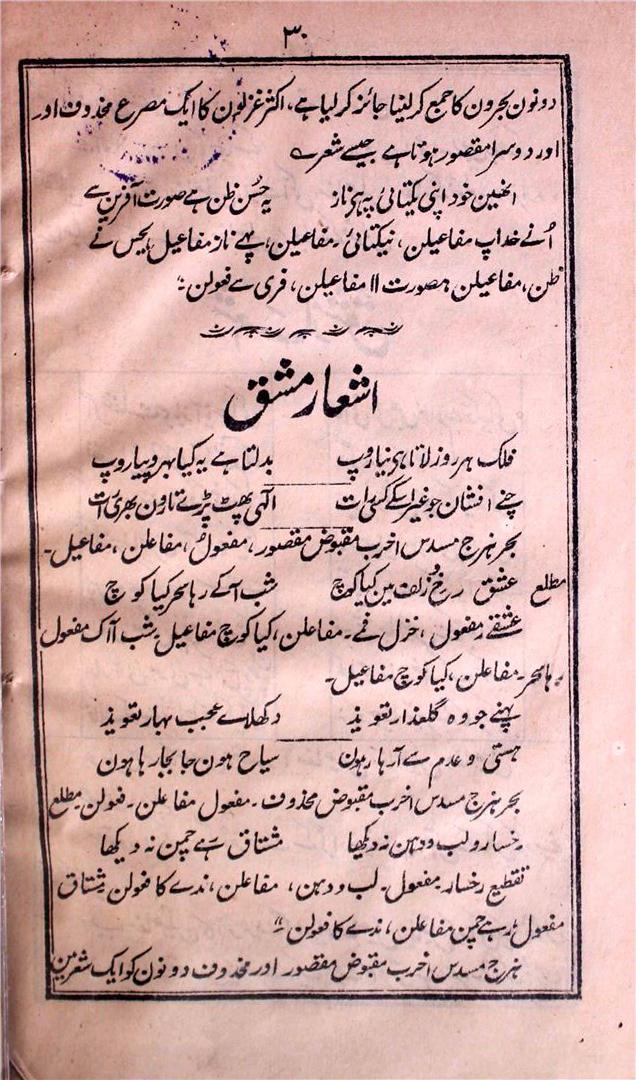 ۳۰
دونون بحرون کا جمع کر لینا جائز کر لیا ہے، اکثر غزلون کا ایک مصرع محذوف اور
اور دوسرا مقصور ہوتا ہے جیسے شعر ے
انھین خود اپنی یکتائی پہ ہے ناز یہ حُسن ظن ہے صورت آفرین سے
اُنے خداپ مفاعیلن، نیکتائی۔ مفاعیلن، پہے ناز مفاعیل یحس نے
ظن، مفاعیلن ہصورت اا مفاعیلن، فری سے فعولن ؞
اشعار مشق
فلک ہر روز لاتا ہی نیا روپ بدلتا ہے یہ کیا بہروپیا روپ
چنے افشان جو غیر اسکے کسی رات الٰہی پھٹ پڑے تارون بھری رات
بحر ہزج مسدس اخرب مقبوض مقصور، مفعولُ، مفاعلن، مفاعیل۔
مطلع عشق رخ زلف مین کیا کوچ شب آکے رہا سحر کیا کوچ
عشقے رمفعول، خزل فے۔ مفاعلن، کیا کوچ مفاعیل۔ شب آاک مفعول
رہا سحر۔ مفاعلن، کیا کوچ مفاعیل۔
پہنے جو وہ گلعذار تعویذ دکھلاے عجب بہار تعویذ
ہستی و عدم سے آ رہا ہون سیاح ہون جابجا رہا ہون
بحر ہزج مسدس اخرب مقبوض محذوف۔ مفعول مفاعلن۔ فعولن مطلع
رخسار و لب و دہن نہ دیکھا مشتاق رہے چمن نہ دیکھا
تقطیع رخسار۔ مفعول۔ لب و دہن، مفاعلن، ندے کا فعولن مشتاق
مفعول، رہے چمن مفاعلن، ندے کا فعولن ؞
ہزج مسدس اخرب مقبوض مقصور اور محذوف دونون کو ایک شعر مین